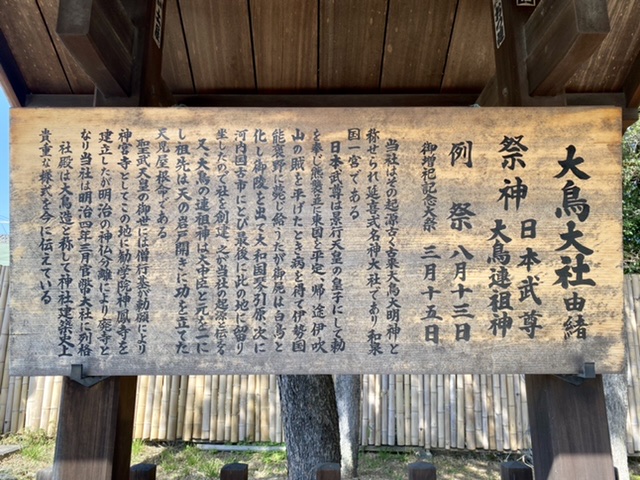 大鳥大社由緒
祭神 日本武尊
大鳥連祖神
例祭 八月十三日
御増祀記念大祭 三月十五日
当社はその起源古く古来大鳥大明神と
称せられ延喜式名神大社であり和泉
国一宮である
日本武尊は景行天皇の皇子にして勅
を奉じ熊襲並に東国を平定し帰途伊吹
山の賊を平げたとき病を得て伊勢国
能褒野に薨じ給うたが御屍は白鳥と
化し御陵を出て大和国琴引原次に
河内国古市にとび最後に此の地に留り
坐したので社を創建之が当社の起源と伝る
又、大鳥の連祖神は大中臣と元を一に
し祖先は天の岩戸開きに功を立てた
天児屋根命である
聖武天皇の御世には僧行基が勅願により
神宮寺としてこの地に勧学院神鳳寺を
建立したが明治の神仏分離により廃寺と
なり当社は明治四年三月官幣大社に列格
社殿は大鳥造と称して神社建築史上
貴重な様式を今に伝えている